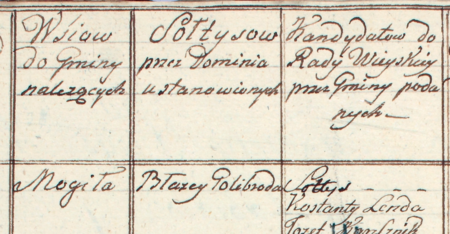 Wsiów
do Gminy
należących
Sołtysow
przez Dominia
ustanowionych
Kandydatow do
Rady Wieyskiey
przez Gminy poda
nych
Mogiła
Błażey Golibroda
Sołtys
Kostanty Lenda
Jozef